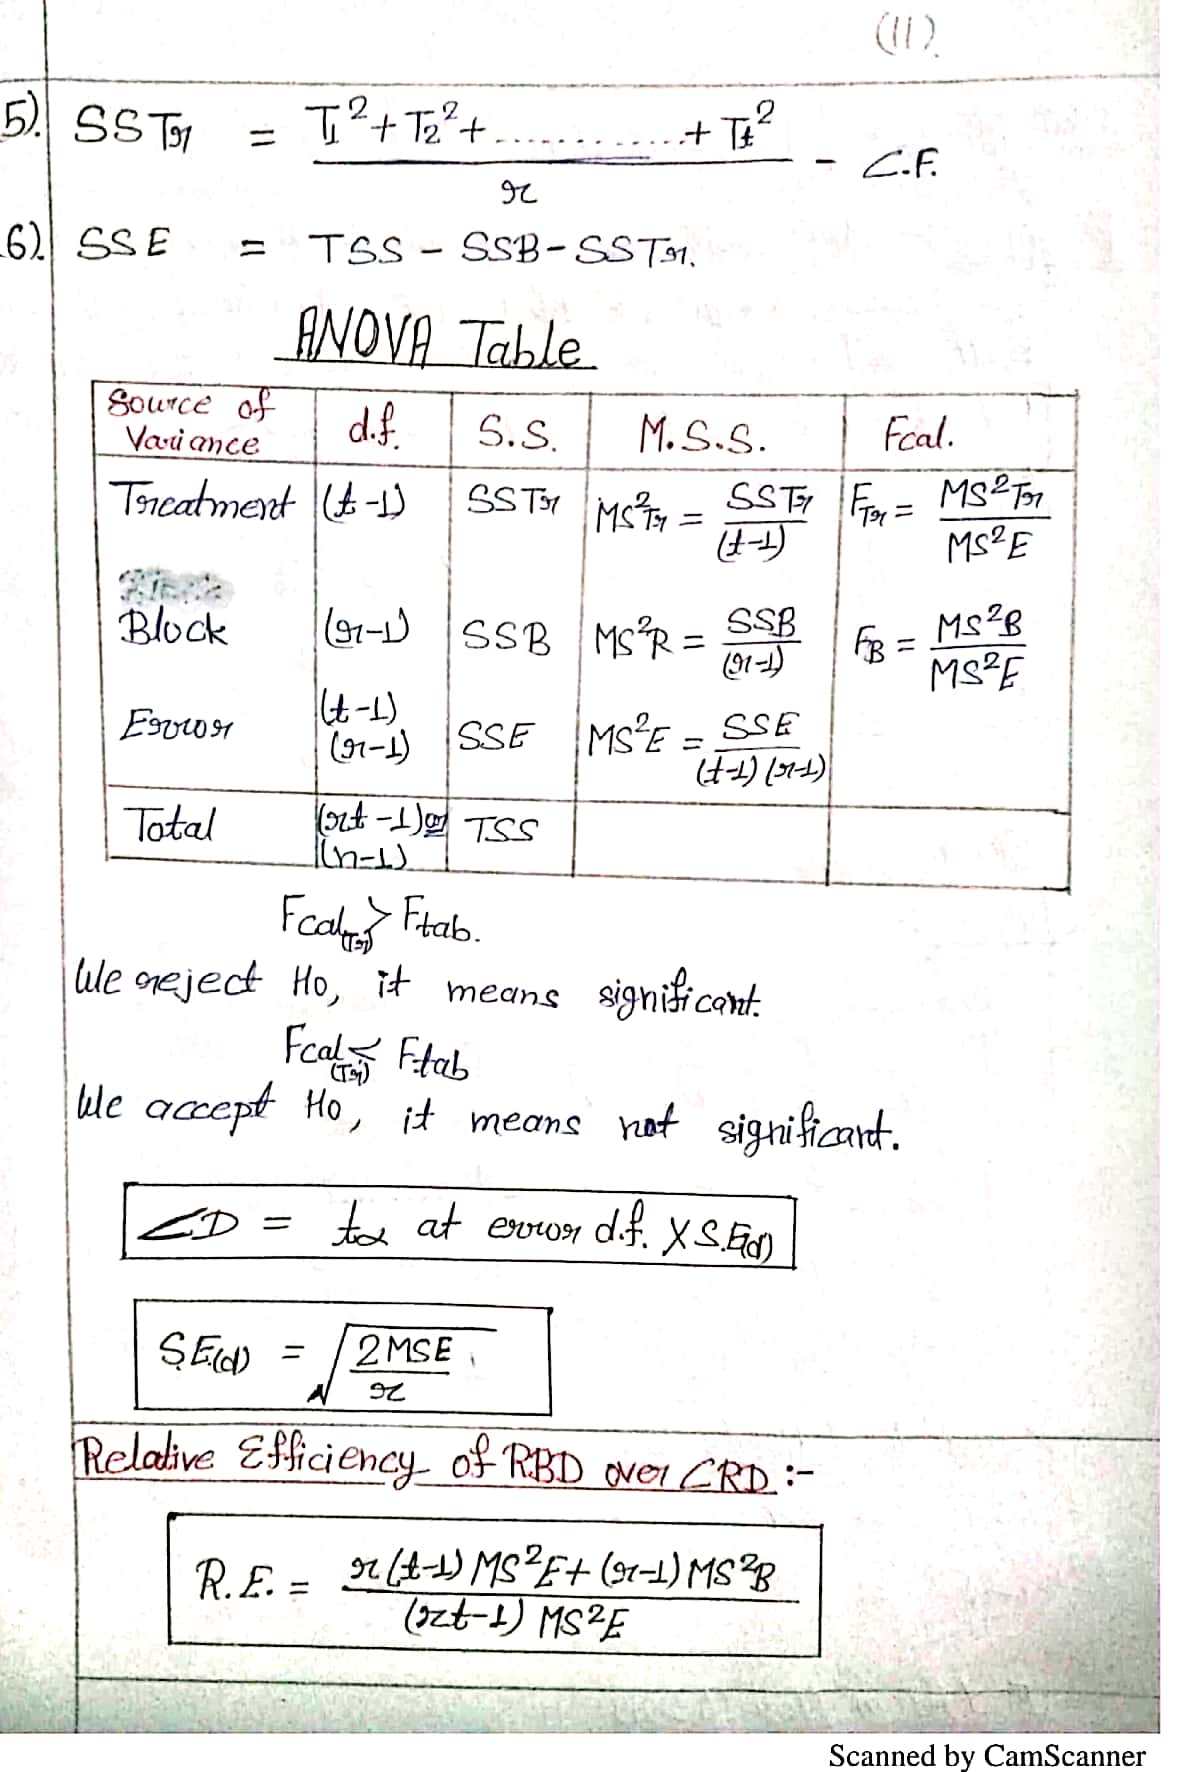 (11)
5). SSTr = T₁² + T₂² + ............ + Tt² / r - C.F.
6). SSE = TSS - SSB - SSTr.
ANOVA Table
Source of Variance | d.f. | S.S. | M.S.S. | Fcal.
Treatment | (t-1) | SSTr | MS²Tr = SSTr / (t-1) | FTr = MS²Tr / MS²E
Block | (r-1) | SSB | MS²R = SSB / (r-1) | FB = MS²B / MS²E
Error | (t-1) (r-1) | SSE | MS²E = SSE / (t-1) (r-1)
Total | (rt-1) or (n-1) | TSS
Fcal(Tr) > Ftab.
We reject Ho, it means significant.
Fcal(Tr) < Ftab
We accept Ho, it means not significant.
CD = tα at error d.f. X S.E(d)
S.E(d) = √ 2MSE / r
Relative Efficiency of RBD over CRD :-
R.E. = r(t-1) MS²E + (r-1) MS²B / (rt-1) MS²E
Scanned by CamScanner